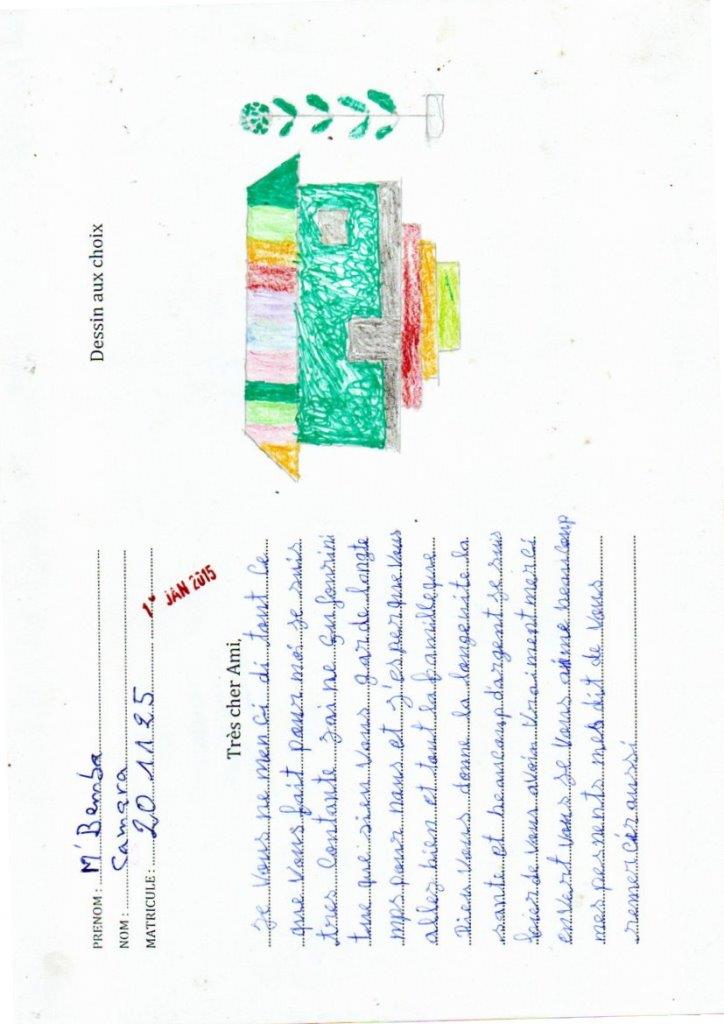 PRENOM : M'Bemba
NOM : Camara
MATRICULE : 20 1125
JAN 2015
Très cher Ami,
Je Vous ne merci di tout Ce
que Vous fait pour moi Je suis
tres Contante Jai ne
tue que sien Vous garde longte
mps pour nous et J'esper que Vous
allez bien et tout la famille que
Dieu Vous donne la longevite la
sante et beaucoup d'argent Je suis
de Vous avoir Vraiment merci
Vous Je Vous aime beaucoup
mes de Vous
remercér aussi
Dessin aux choix